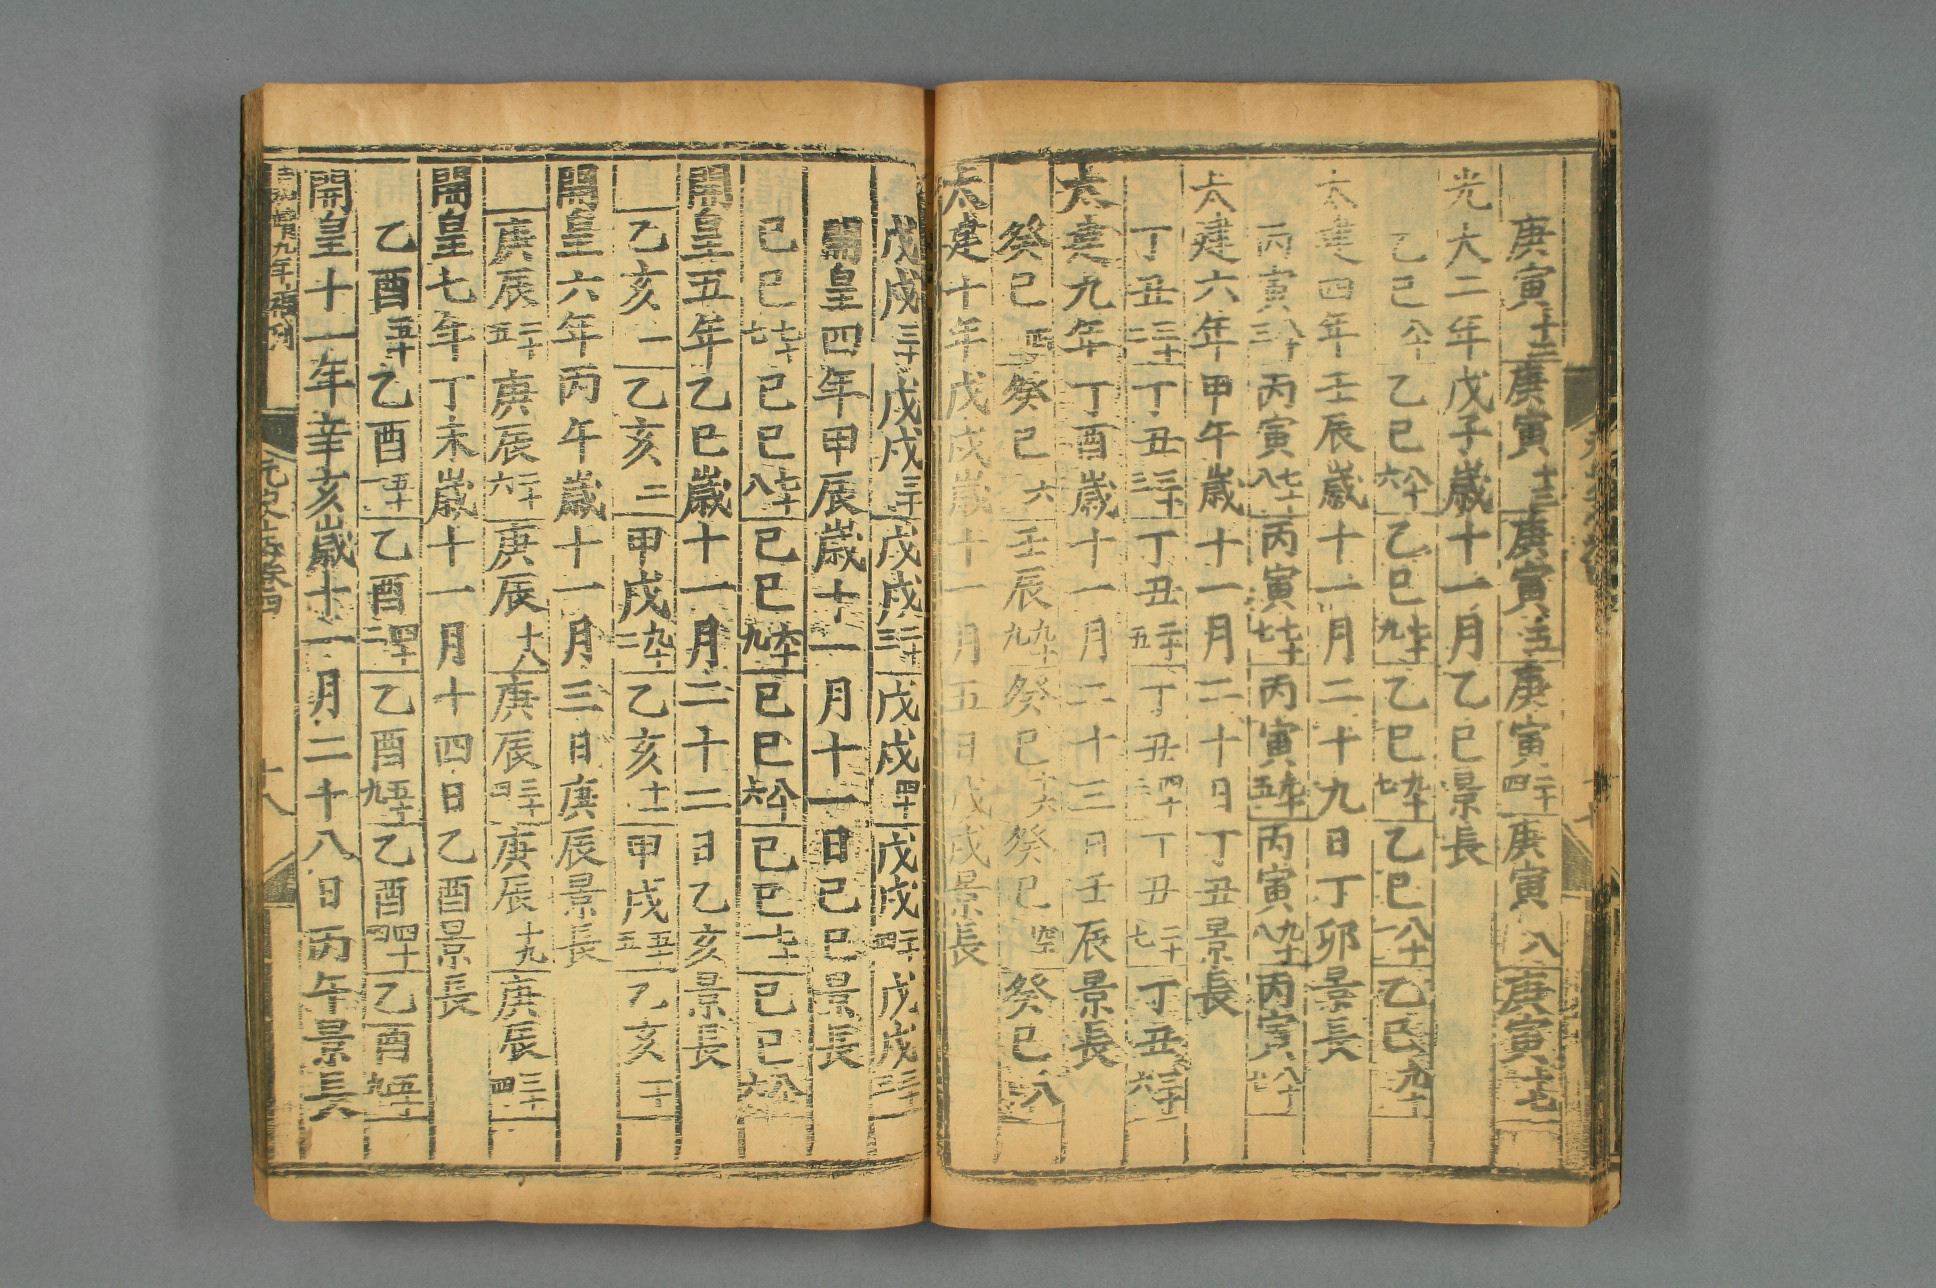 庚寅十三庚寅十三庚寅五庚寅二十四庚寅八庚寅十七
光大二年戊子歲十一月乙巳景長
乙巳八十乙巳八十六乙巳七十九乙巳九十七乙巳八十一乙巳九十
太建四年壬辰歲十一月二十九日丁卯景長
丙寅八十三丙寅七十八丙寅七十七丙寅九十五丙寅九十八丙寅八十七
太建六年甲午歲十一月二十日丁丑景長
丁丑三十二丁丑三十三丁丑二十五丁丑四十二丁丑二十七丁丑三十六
太建九年丁酉歲十一月二十三日壬辰景長
癸巳癸巳六壬辰九十九癸巳十六癸巳空癸巳八
太建十年戊戌歲十一月五日戊戌景長
戊戌三十戊戌三十戊戌二十三戊戌四十戊戌二十四戊戌三十三
開皇四年甲辰歲十一月十一日己巳景長
己巳七十七己巳七十八己巳六十九己巳八十六己巳七十一己巳八十六
開皇五年乙巳歲十一月二十二日乙亥景長
乙亥一乙亥二甲戌九十二乙亥十一甲戌五十五乙亥一十
開皇六年丙午歲十一月三日庚辰景長
庚辰二十五庚辰二十六庚辰十八庚辰三十四庚辰十九庚辰三十四
開皇七年丁未歲十一月十四日乙酉景長
乙酉五十乙酉五十一乙酉四十二乙酉五十九乙酉四十四乙酉五十九
開皇十一年辛亥歲十一月二十八日丙午景長
九年補刊
元史 卷四 十八